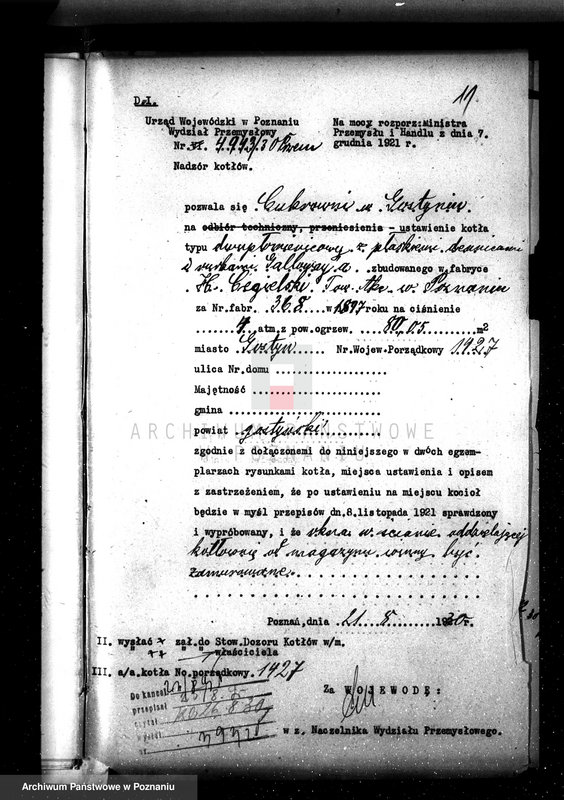 D.I.
17
Urząd Wojewódzki w Poznaniu
Wydział Przemysłowy
Nr. 4993/30
Nadzór kotłów.
Na mocy rozporz:Ministra
Przemysłu i Handlu z dnia 7.
grudnia 1921 r.
pozwala się Cukrowni w Gostyniu.
na odbiór techniczny, przeniesienia - ustawienie kotła
typu dwupłomienicowy z płaskiemi dennicami
i rurkami Galloway'a . zbudowanego w fabryce
H. Cegielski Tow. Akc. w Poznaniu
za Nr.fabr. 368 w 1897 roku na ciśnienie
atm.z pow.ogrzew. 80,05 m2
miasto Gostyń Nr.Wojew.Porządkowy 1427
ulica Nr.domu
Majętność
gmina
ARCHIWUM PAŃSTWOWE
W POZNANIU
powiat gostyński
zgodnie z dołączonemi do niniejszego w dwóch egzem-
plarzach rysunkami kotła, miejsca ustawienia i opisem
z zastrzeżeniem, że po ustawieniu na miejscu kocioł
będzie w myśl przepisów dn.8.listopada 1921 sprawdzony
i wypróbowany, i że okna w ścianie oddzielającej
kotłownię od magazynu winny być
zamurowane.
Poznań,dnia 21. 8 1930.
II. wysłać zał.do Stow.Dozoru Kotłów w/m.
" " " właściciela
III. a/a.kotła No.porządkowy. 1427
Do kancel.
przepisał
czytał
wysłał
nr.
Za WOJEWODĘ:
w z. Naczelnika Wydziału Przemysłowego.
Archiwum Państwowe w Poznaniu